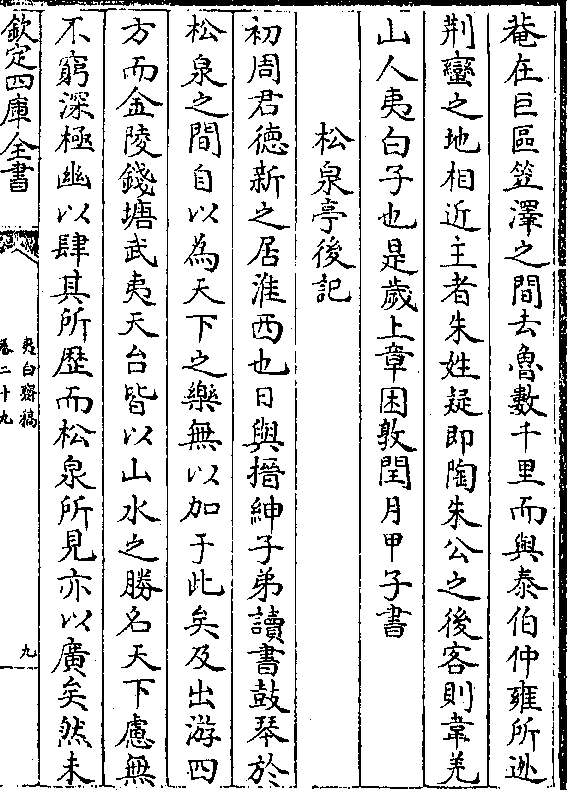 菴在巨區笠澤之間去魯數千里而與泰伯仲雍所逊
荆蠻之地相近主者朱姓疑即陶朱公之後客則韋羌
山人夷白子也是歲上章困敦閏月甲子書
松泉亭後記
初周君徳新之居淮西也日與搢紳子弟讀書鼓琴於
松泉之間自以為天下之樂無以加于此矣及出游四
方而金陵錢塘武夷天台皆以山水之勝名天下慮無
不窮深極幽以肆其所歴而松泉所見亦以廣矣然未
欽定四庫全書
夷白齋稿
卷二十九
九